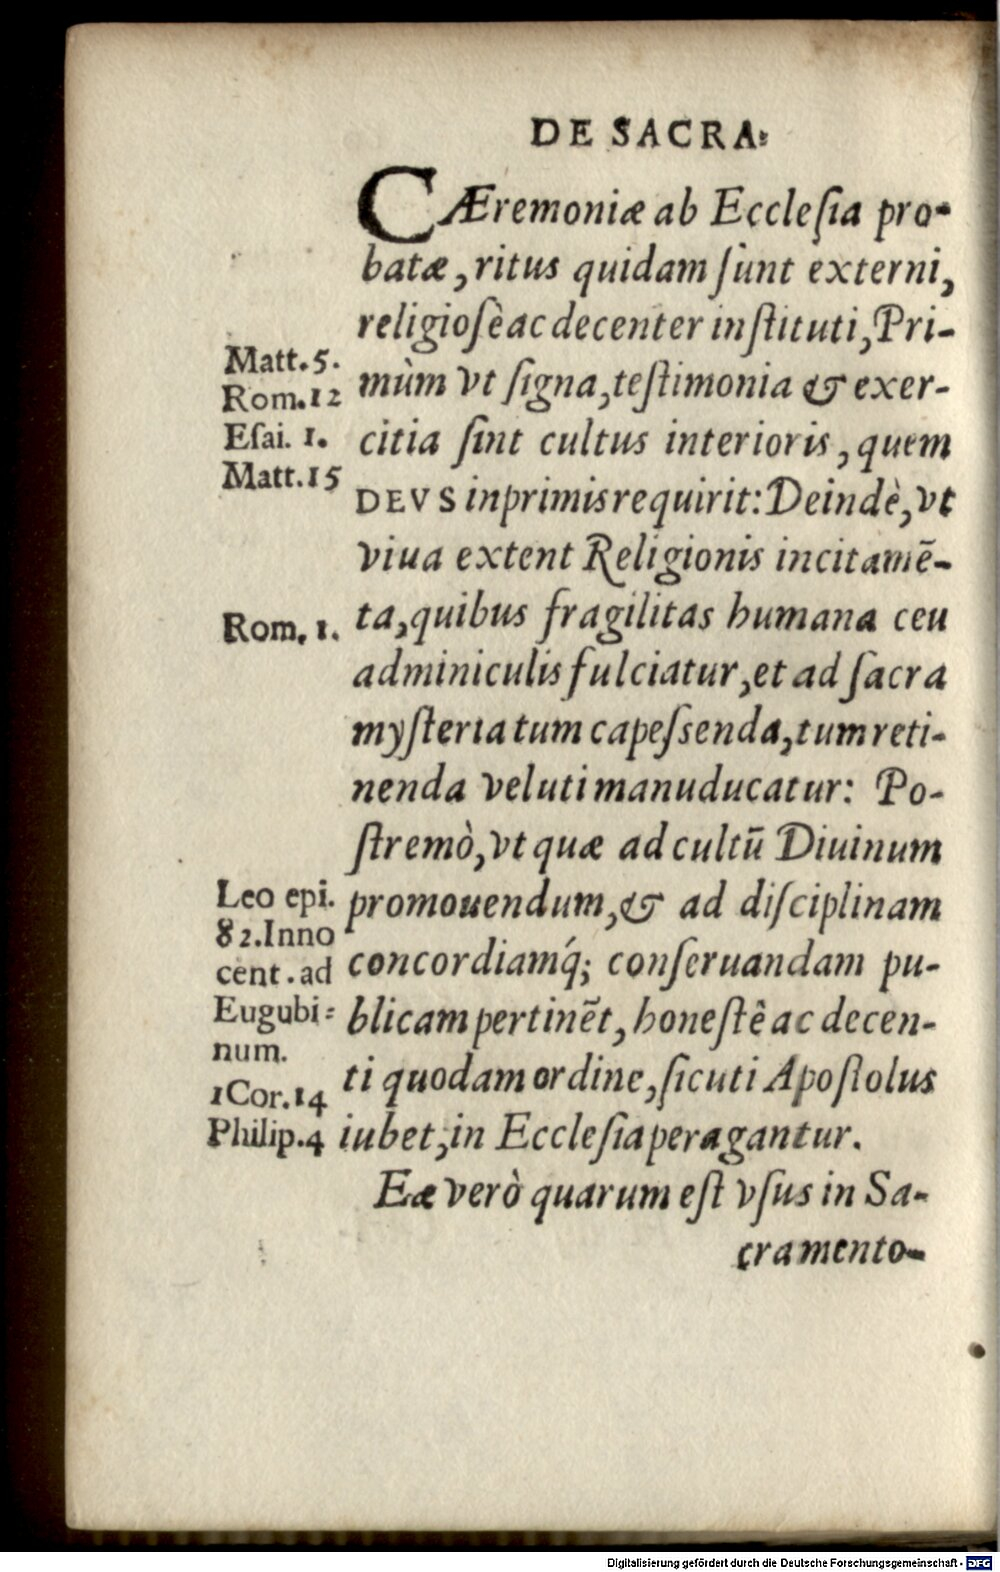 DE SACRA-
CÆremoniæ ab Eccleſia pro-
batæ, ritus quidam ſunt externi,
religioſè ac decenter inſtituti, Pri-
mùm vt ſigna, teſtimonia & exer-
citia ſint cultus interioris, quem
DEVS inprimis requirit: Deindè, vt
viua extent Religionis incitamē-
ta, quibus fragilitas humana ceu
adminiculis fulciatur, et ad ſacra
myſteria tum capeſsenda, tum reti-
nenda veluti manuducatur: Po-
ſtremò, vt quæ ad cultū Diuinum
promouendum, & ad diſciplinam
concordiamq́; conſeruandam pu-
blicam pertinēt, honeſtè ac decen-
ti quodam ordine, ſicuti Apoſtolus
iubet, in Eccleſia peragantur.
Eæ verò quarum eſt vſus in Sa-
cramento-
Matt.5.
Rom.12
Eſai. 1.
Matt.15
Rom. 1.
Leo epi.
82.Inno
cent.ad
Eugubi-
num.
1Cor.14
Philip.4
Digitalisierung gefördert durch die Deutsche Forschungsgemeinschaft - DFG